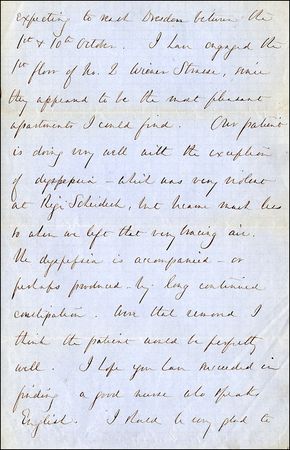 expecting to reach Dresden between the
1st & 10th October. I have engaged the
1st floor of No. 2 Wiener Strasse, since
they appeared to be the most pleasant
apartments I could find. Our patient
is doing very well with the exception
of dyspepsia – which was very violent
at Rigi Scheideck, but became much less
so when we left that very bracing air.
The dyspepsia is accompanied – or
perhaps produced – by long continued
constipation. Were that removed I
think the patient would be perfectly
well. I hope you have succeeded in
finding a good nurse who speaks
English. I should be very glad to